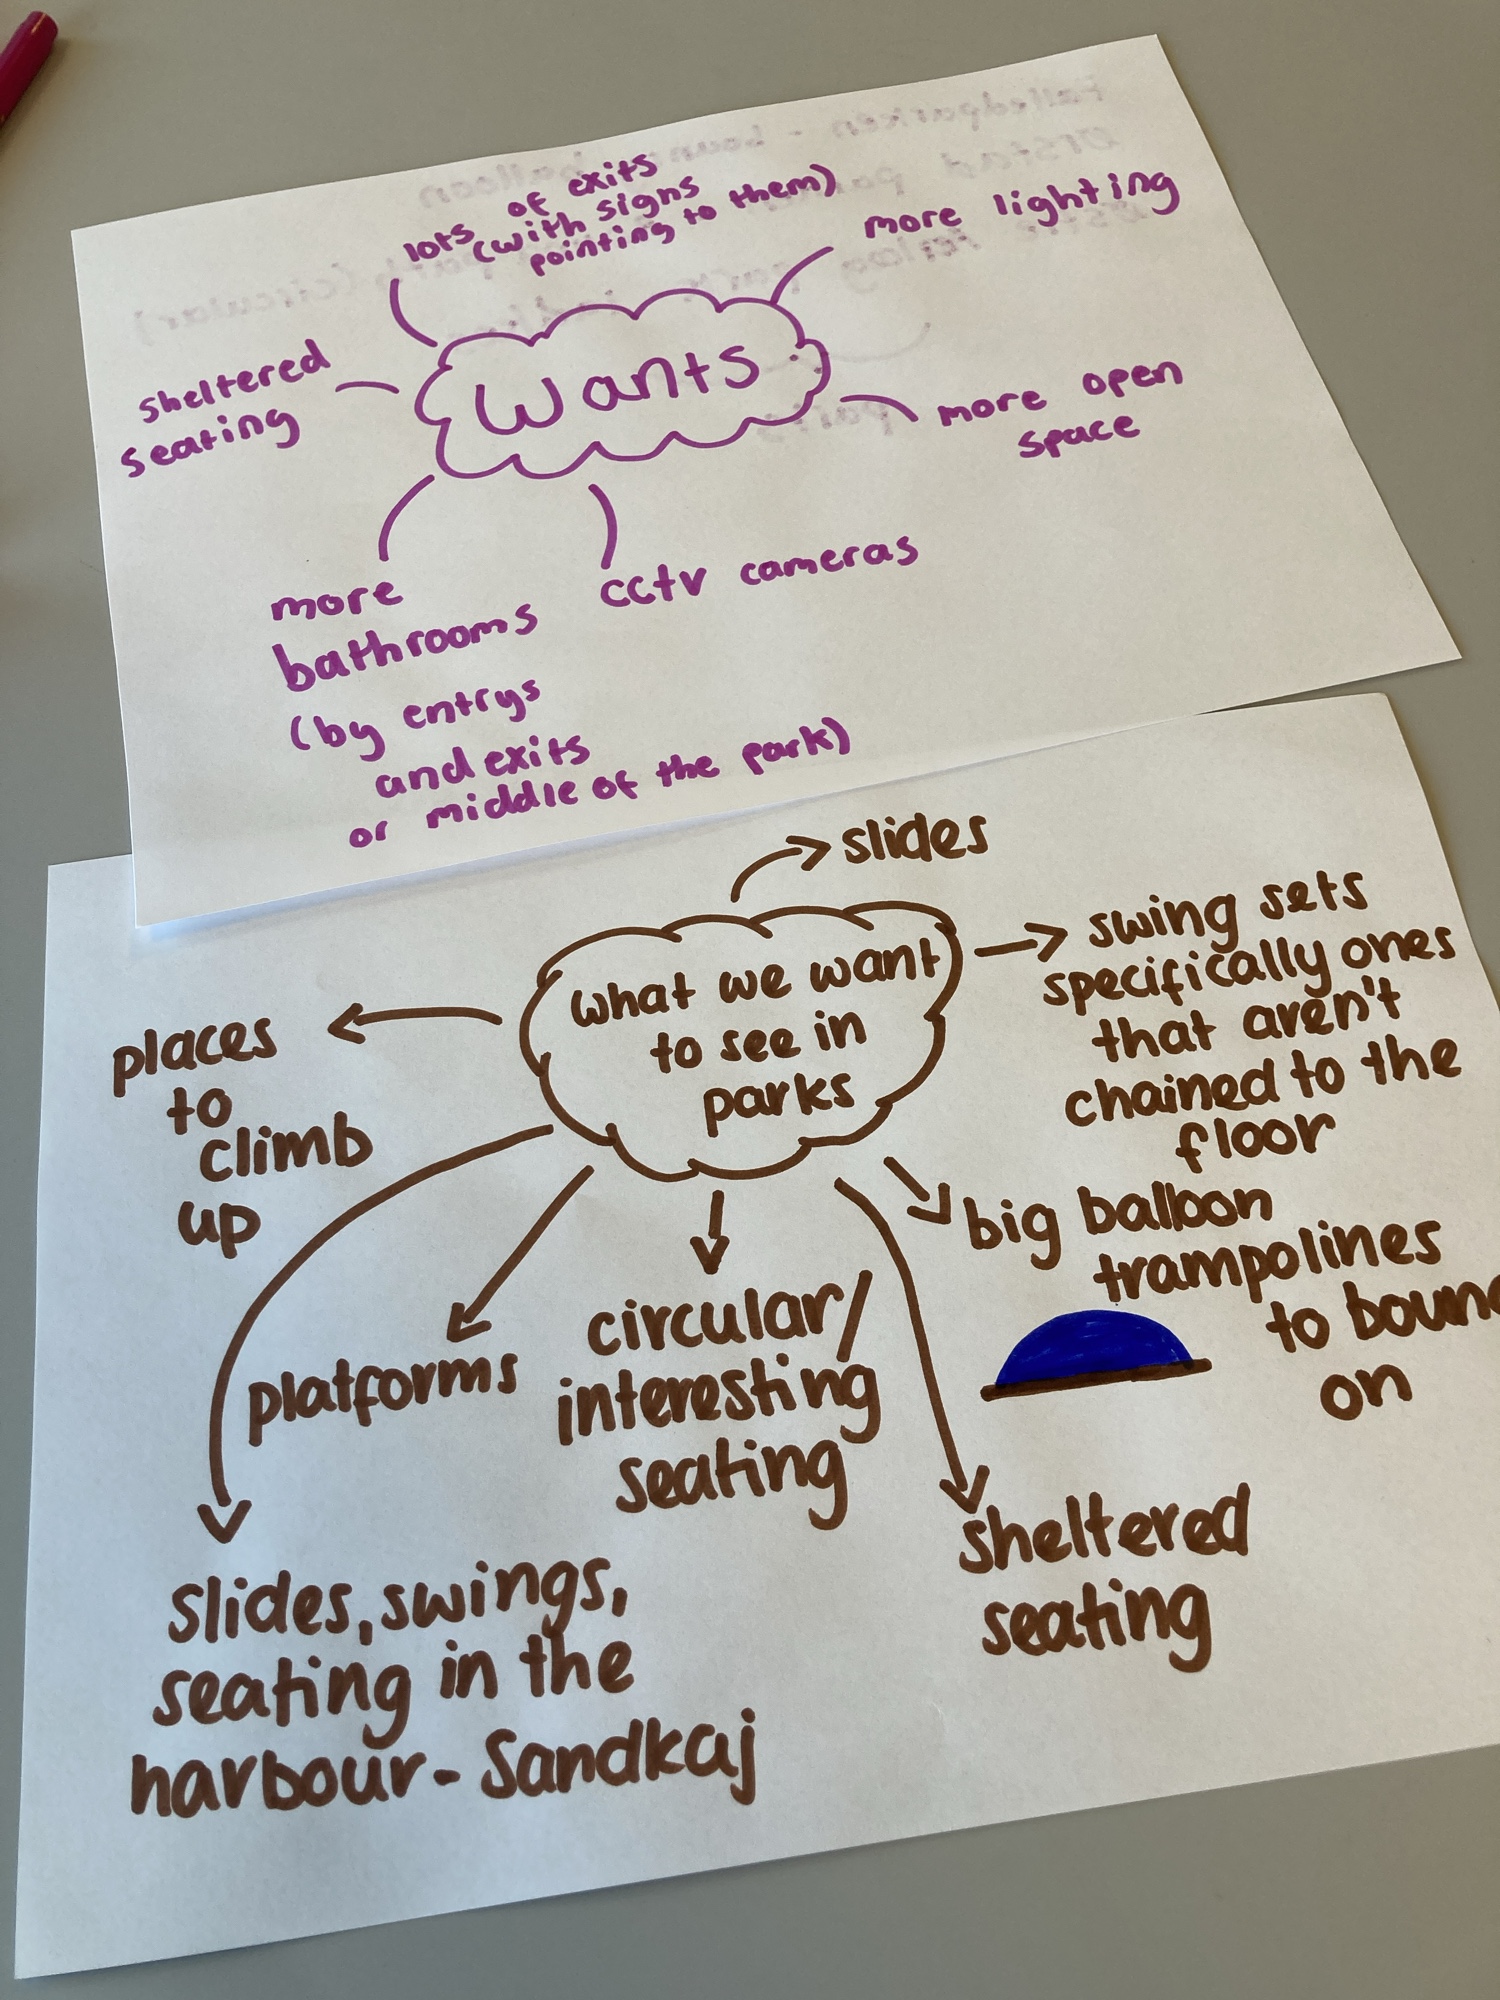 lots of exits
(with signs
pointing to them)
more lighting
sheltered
seating
wants
more open
space
more
bathrooms
(by entrys
and exits
or middle of the park)
cctv cameras
slides
what we want
to see in
parks
swing sets
specifically ones
that aren't
chained to the
floor
places
to
climb
up
big balloon
trampolines
to
on
platforms
circular/
interesting
seating
sheltered
seating
slides, swings,
seating in the
harbour - Sandkaj